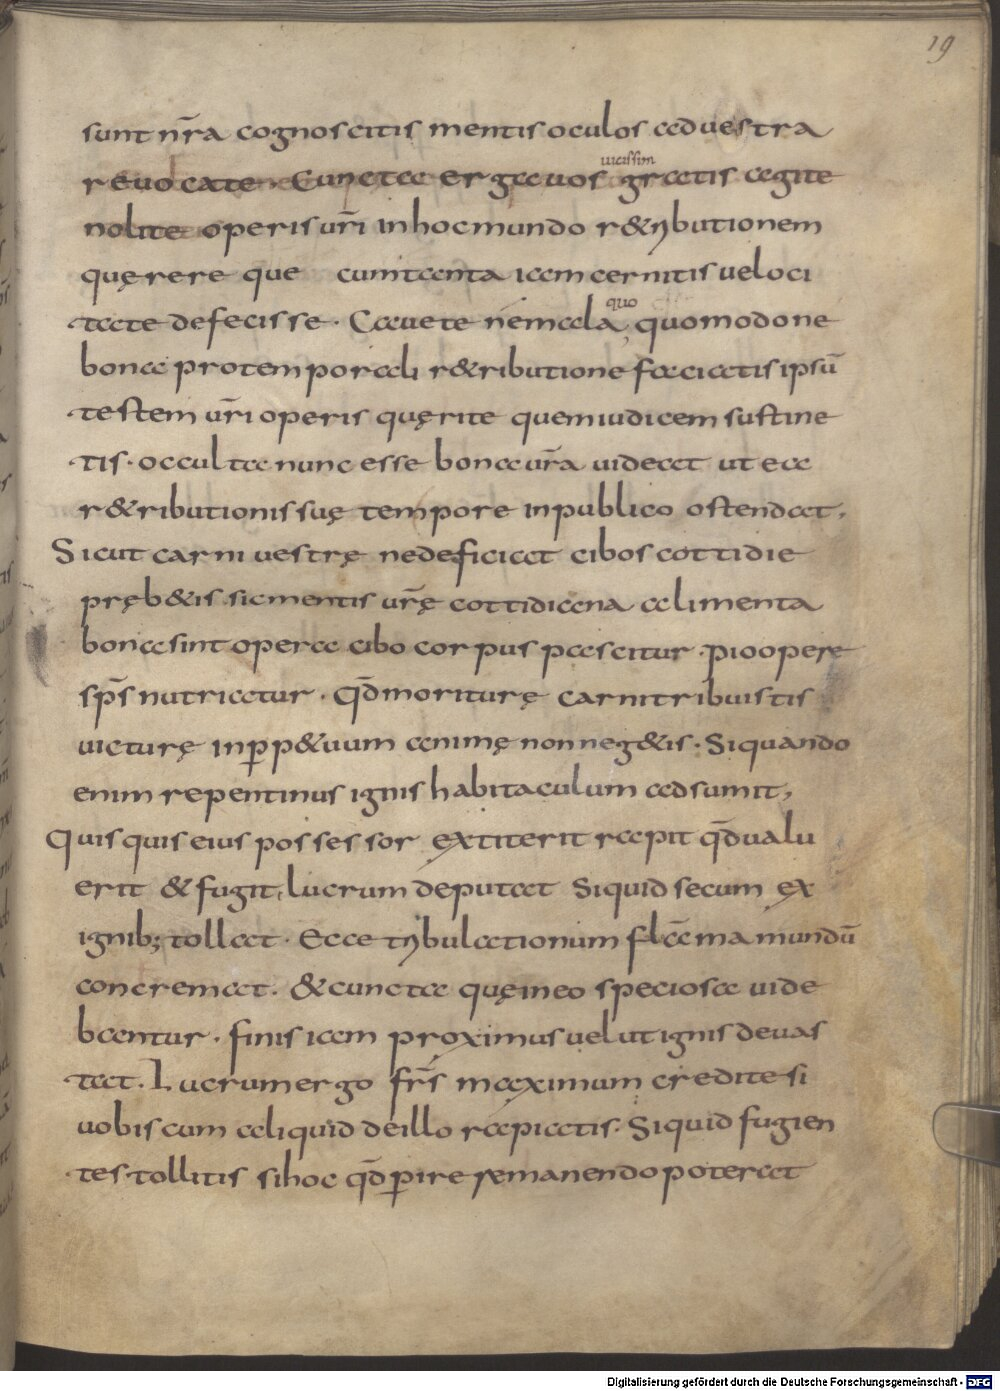 19
sunt nr̄a cognoscitis mentis oculos ad vestra
revocate. Cuncta erga vos uicissim gratis agite
nolite operis ur̄i in hoc mundo r&ributionem
quęrere que cum tanta iam cernitis veloci
tate defecisse. Cauete nem ala quo, quomodo ne
bona pro temporali r&ributione faciatis ipsū
testem ur̄i operis quęrite quem iudicem sustine
tis. occulta nunc esse bona ur̄a uideat ut ea
r&ributionis suę tempore in publico ostendat,
Sicut carni vestrę ne deficiat cibos cottidie
pręb&is. sic mentis ur̄ę cottidiana alimenta
bona sint opera cibo corpus pascitur. pio opere
sp̄s nutriatur. qd̄ moriturę carni tribuistis
uicturę in pp&uum animę non neg&is. Si quando
enim repentinus ignis habitaculum adsumit,
Quisquis eius possessor extiterit rapit qd̄ valu
erit & fugit, lucrum deputat siquid secum ex
ignib; tollat. Ecce tribulationum flām̄a mundū
concremat. & cuncta quę in eo speciosa uide
bantur. finis iam proximus velut ignis deuas
tat. Lucrum ergo fr̄s maximum credite si
vobiscum aliquid de illo rapiatis. Siquid fugien
tes tollitis si hoc qd̄ perire remanendo poterat
Digitalisierung gefördert durch die Deutsche Forschungsgemeinschaft - DFG